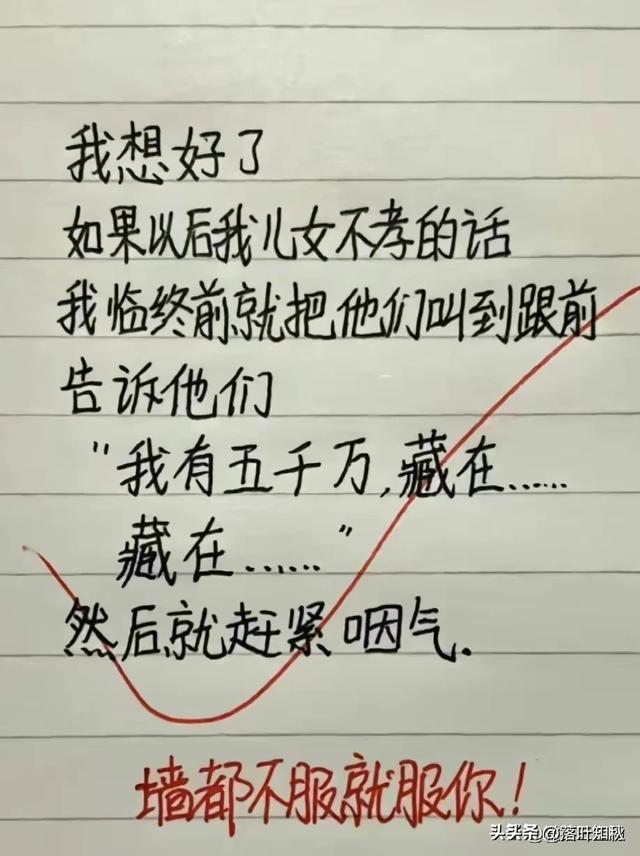 我想好了
如果以后我儿女不孝的话
我临终前就把他们叫到跟前
告诉他们
“我有五千万,藏在......
藏在......”
然后就赶紧咽气.
墙都不服就服你!
头条 @落叶知秋